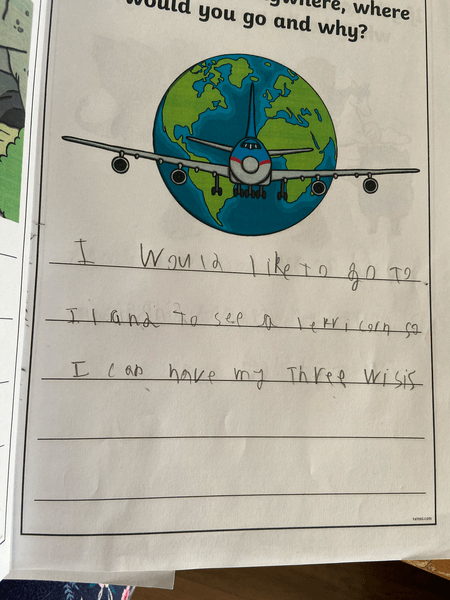 ywhere, where
would you go and why?
I Would like to go to
I land to see a lerricorn so
I can have my Three wisis
twinkl.com